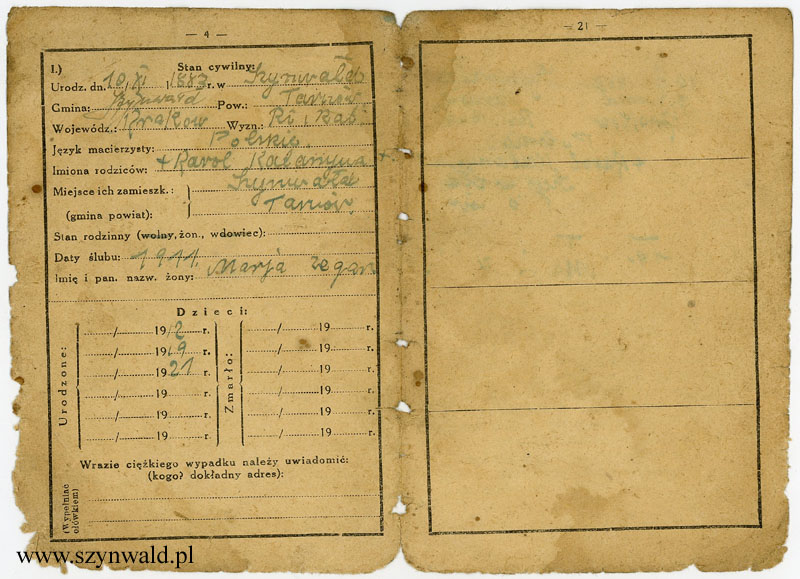 — 4 —
I.) Stan cywilny:
Urodz. dn. 10/XI 1883 r. w Szynwałd
Gmina: Szynwałd Pow.: Tarnów
Wojewódz.: Kraków Wyzn.: Rz. kat.
Język macierzysty: Polski
Imiona rodziców: + Karol Katarzyna +
Miejsce ich zamieszk.: Szynwałd
(gmina powiat): Tarnów
Stan rodzinny (wolny, żon., wdowiec):
Daty ślubu: 1911
Imię i pan. nazw. żony: Marja
Dzieci:
Urodzone:
Zmarło:
/ 1912 r. / 19 r.
/ 1919 r. / 19 r.
/ 1921 r. / 19 r.
/ 19 r. / 19 r.
/ 19 r. / 19 r.
/ 19 r. / 19 r.
Wrazie ciężkiego wypadku należy uwiadomić:
(kogo? dokładny adres):
(Wypełniać
ołówkiem)
— 21 —
www.szynwald.pl